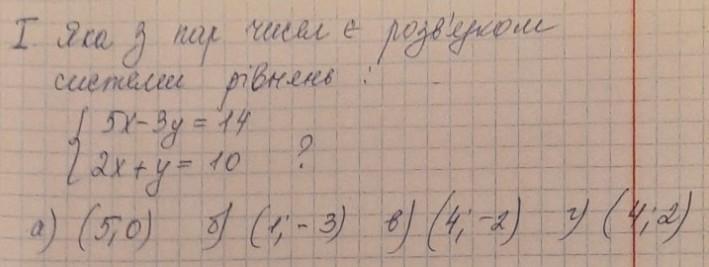 I Яка з пар чисел є розв'язком
системи рівнянь :
{ 5x-3y = 14
2x+y = 10 ?
а) (5;0) б) (1;-3) в) (4;-2) г) (4;2)